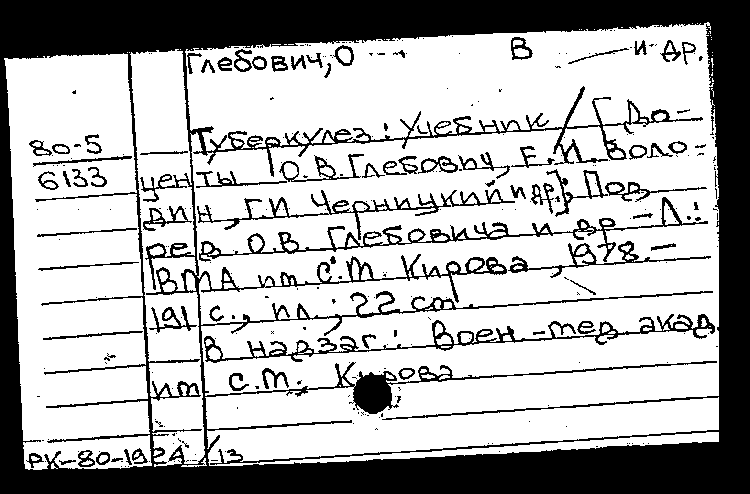 Глебович, О В и др.
80-5
6133
Туберкулез: Учебник / [До-
центы О.В. Глебович, Е.И. Воло-
дин, Г.И Черницкий и др.]; Под
ред. О.В. Глебовича и др - Л.:
ВМА им. С.М. Кирова, 1978. -
191 с., ил.; 22 см.
В надзаг.: Воен-мед. акад.
им С.М. Кирова
РК-80-1924 /13